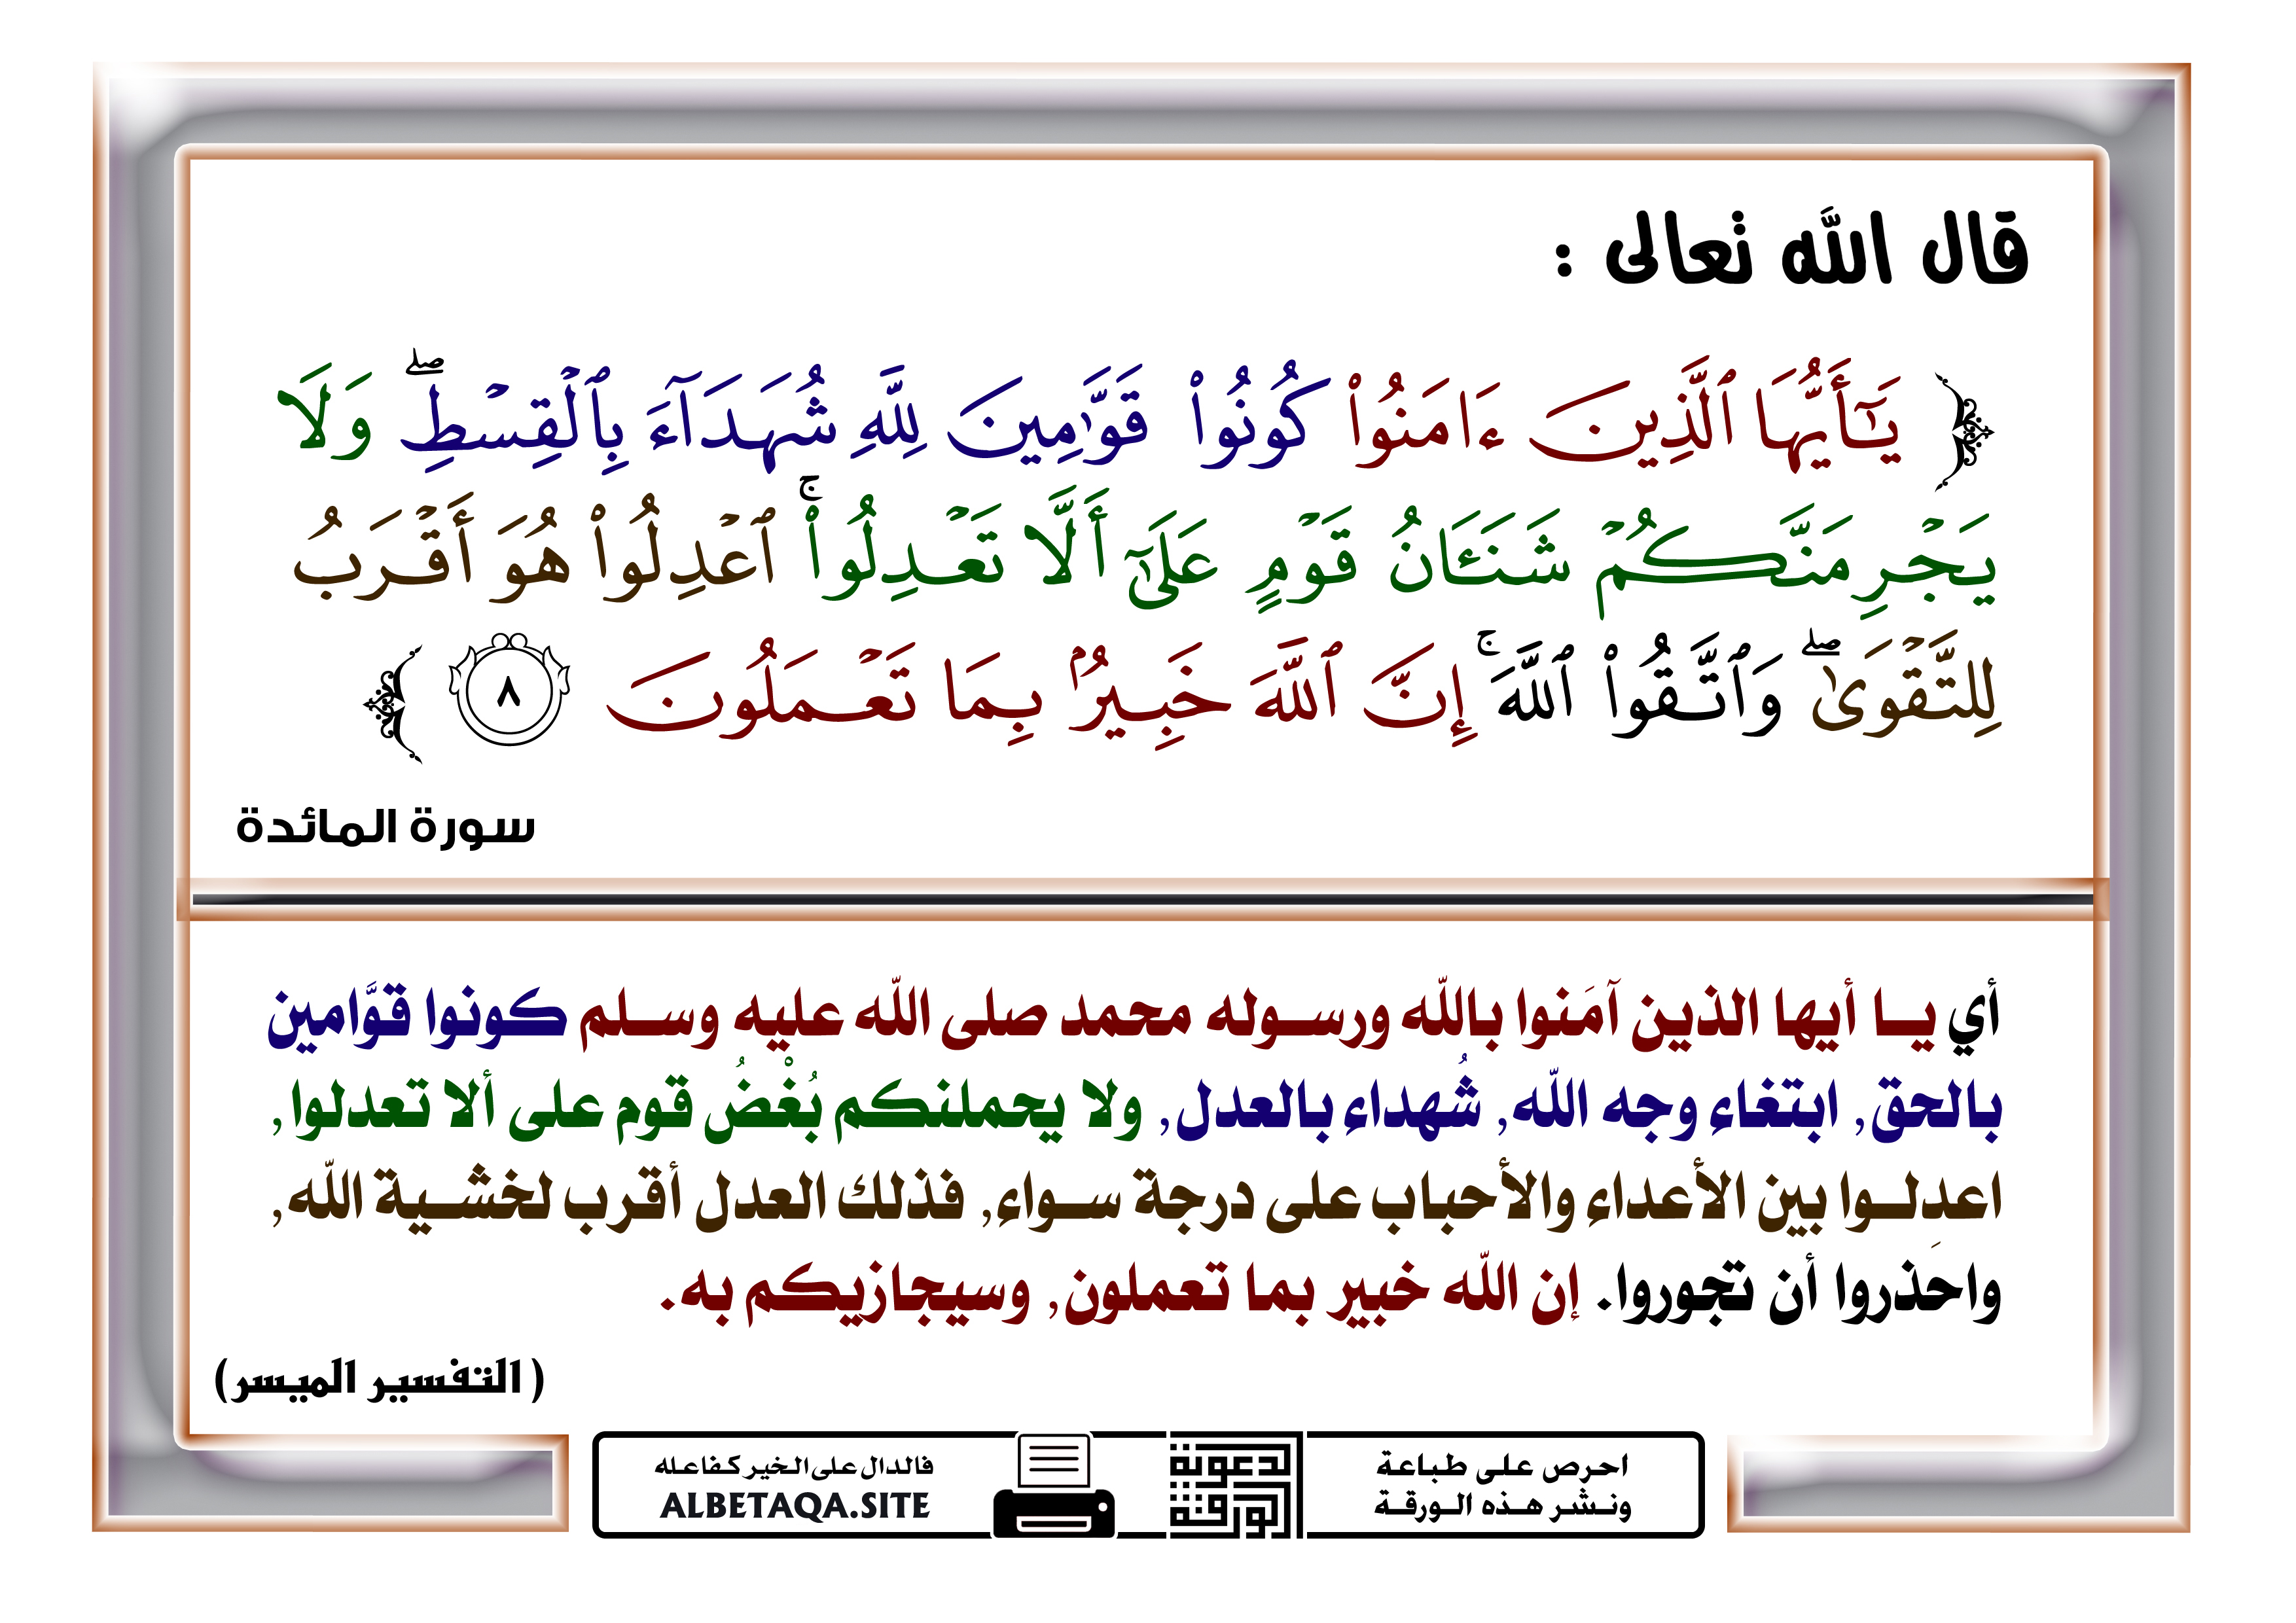 قال الله تعالى :
﴿ يَـٰٓأَيُّهَا ٱلَّذِينَ ءَامَنُوا۟ كُونُوا۟ قَوَّٰمِينَ لِلَّهِ شُهَدَآءَ بِٱلْقِسْطِ ۖ وَلَا
يَجْرِمَنَّكُمْ شَنَـَٔانُ قَوْمٍ عَلَىٰٓ أَلَّا تَعْدِلُوا۟ ۚ ٱعْدِلُوا۟ هُوَ أَقْرَبُ
لِلتَّقْوَىٰ ۖ وَٱتَّقُوا۟ ٱللَّهَ ۚ إِنَّ ٱللَّهَ خَبِيرٌۢ بِمَا تَعْمَلُونَ ٨ ﴾
سورة المائدة
أي يـا أيها الذين آمَنوا بالله ورسـوله محمد صلى الله عليه وسـلم كونوا قوَّامين
بالحق, ابتغاء وجه الله, شُهداء بالعدل, ولا يحملنكم بُغْضُ قوم على ألا تعدلوا,
اعدلـوا بين الأعداء والأحباب على درجة سـواء, فذلك العدل أقرب لخشـية الله,
واحَذروا أن تجوروا. إن الله خبير بما تعملون, وسيجازيكم به.
( التفسير الميسر)
احرص على طباعة
ونـشـر هـذه الـورقـة
الدعوية
الورقة
فالدال على الخير كفاعله
ALBETAQA.SITE